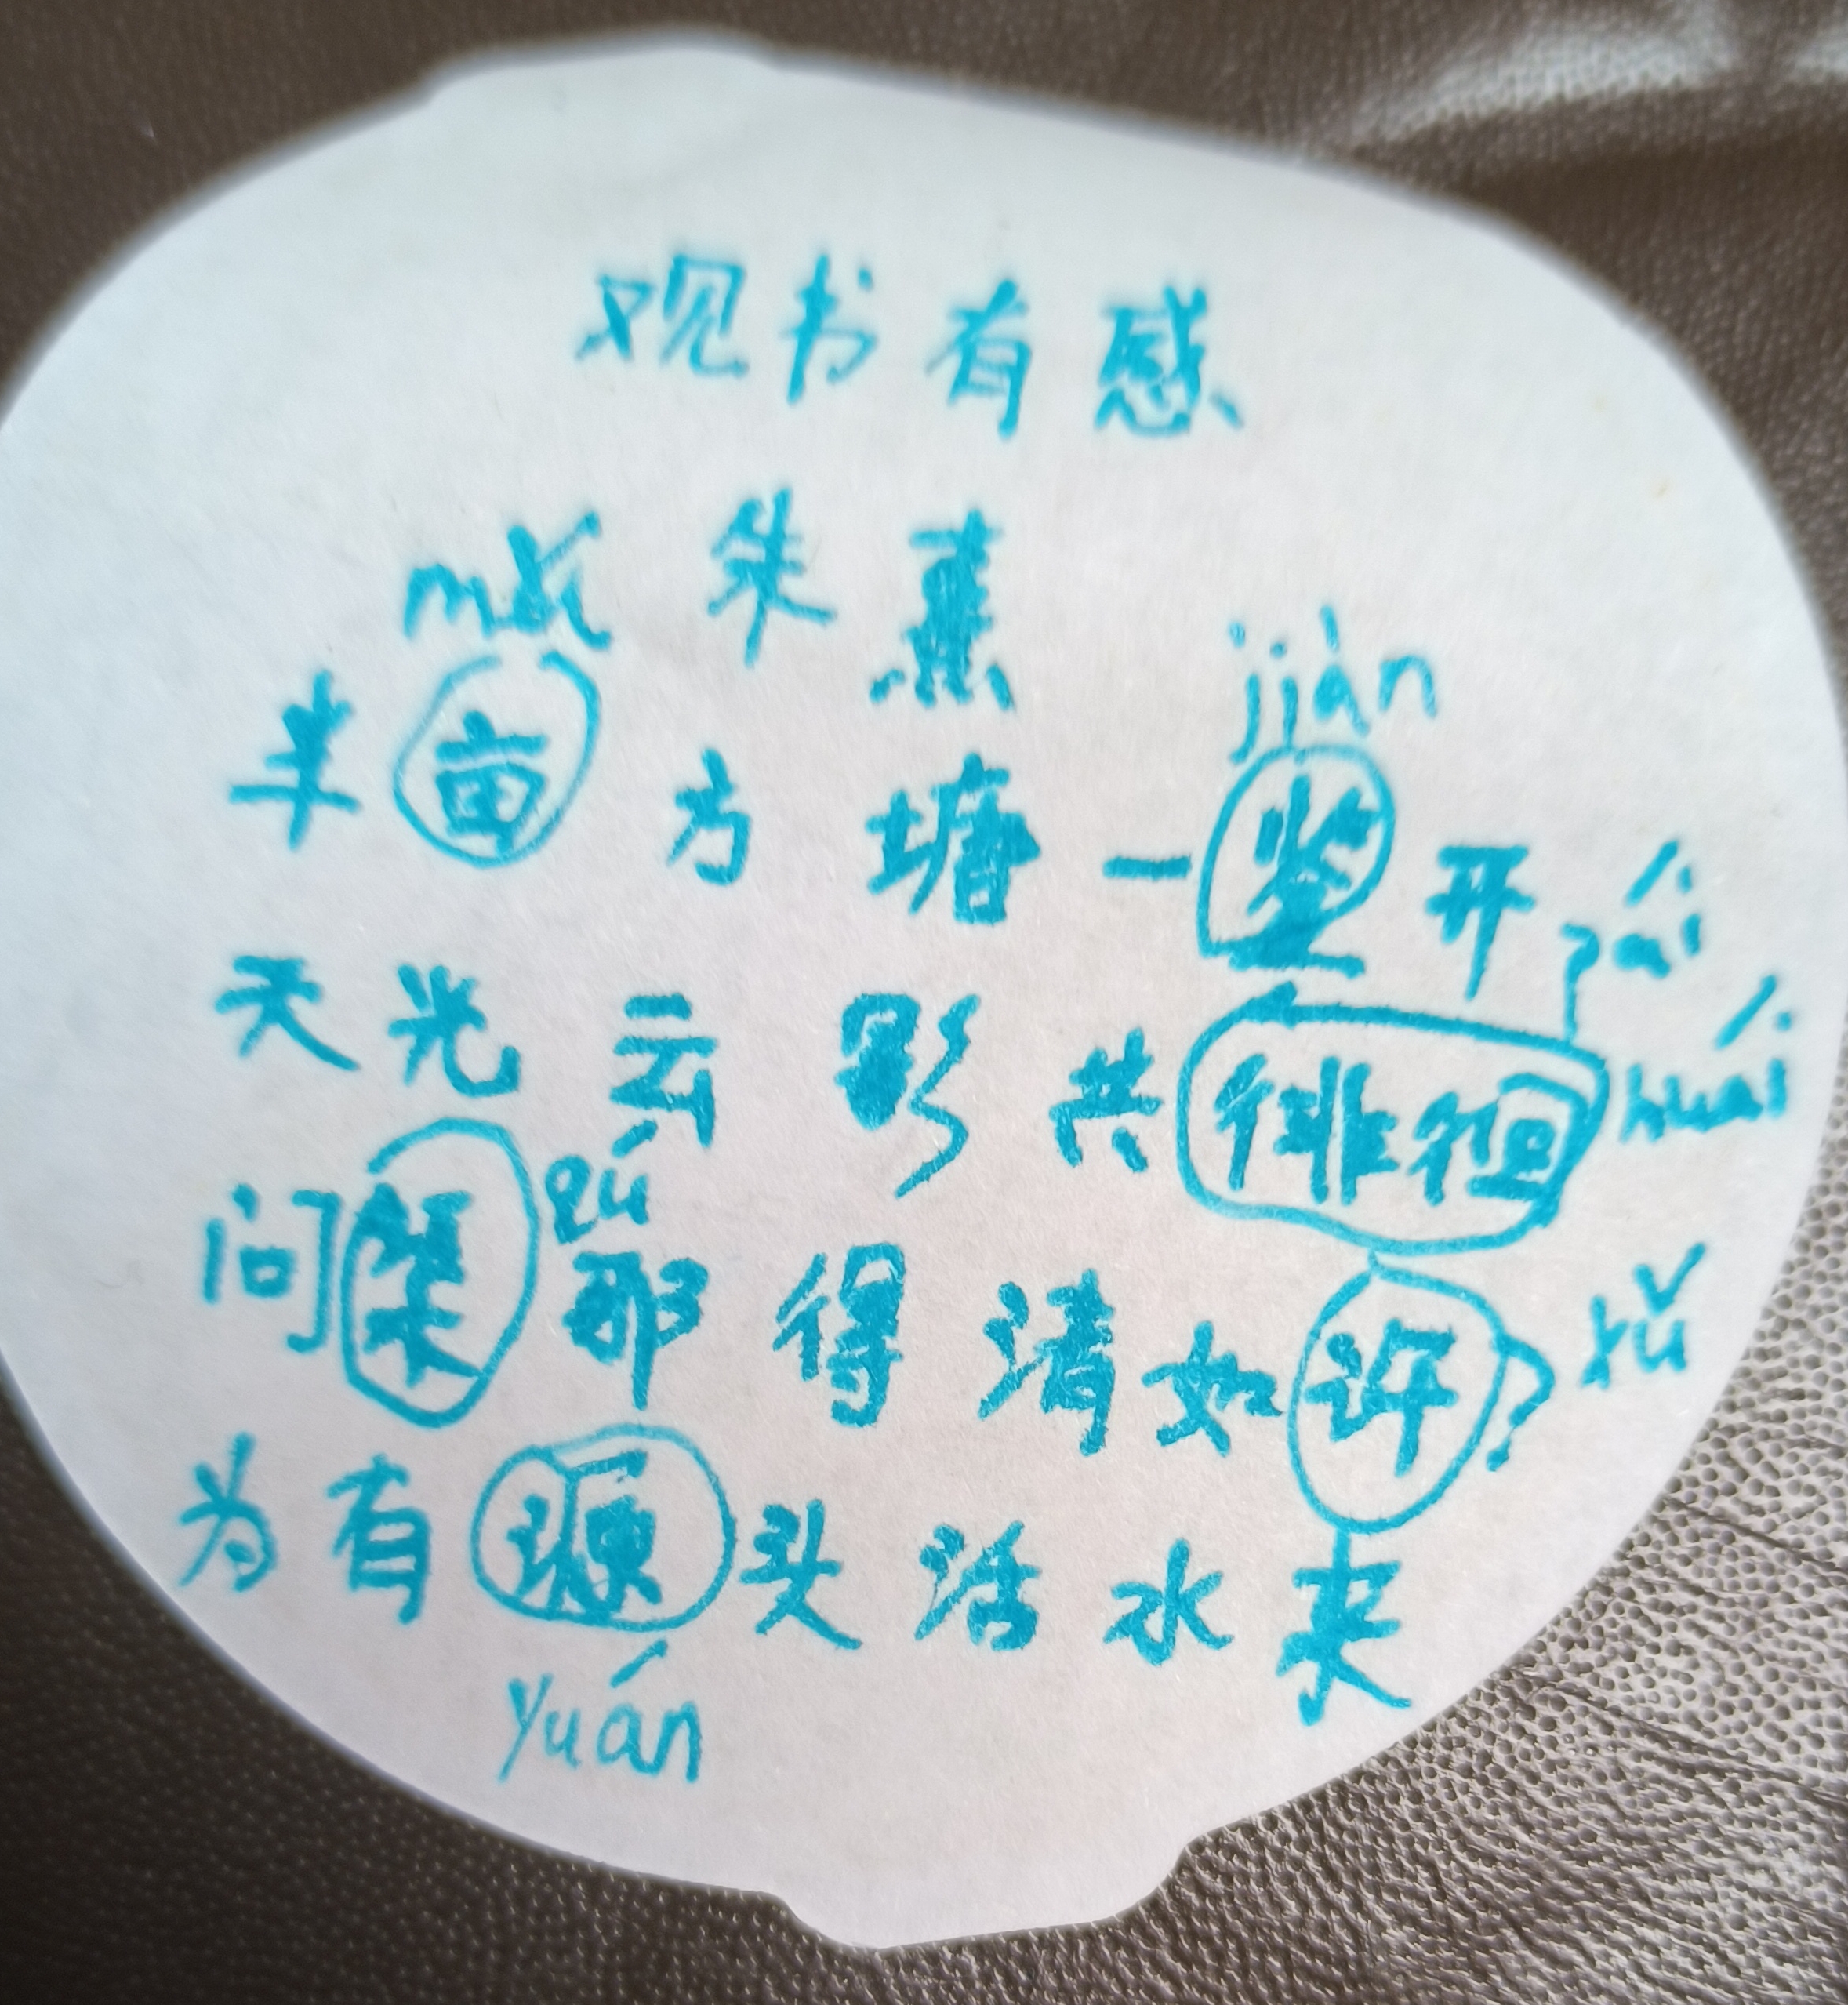 观书有感
朱熹
mǔ jiàn
半亩方塘一鉴开
pái huái
天光云影共徘徊
qú xǔ
问渠那得清如许?
为有源头活水来
yuán